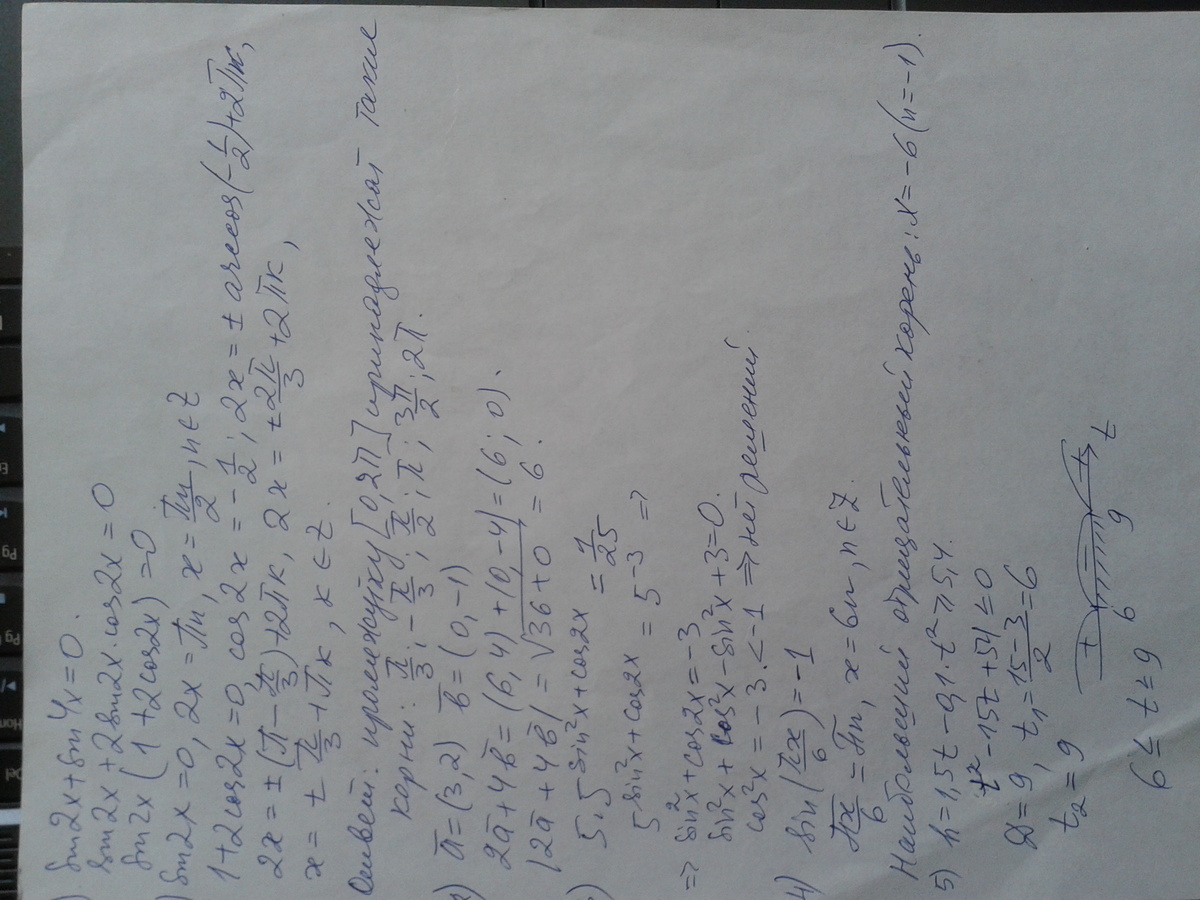 1) sin2x+sin4x=0.
sin2x+2sin2x·cos2x=0
sin2x(1+2cos2x)=0
) sin2x=0, 2x=πn, x=πn/2, n∈Z
1+2cos2x=0, cos2x=-1/2; 2x=±arccos(-1/2)+2πк,
2x=±(π-π/3)+2πк, 2x=±2π/3+2πк,
x=±π/3+πк, к∈Z.
Ответ: промежутку [0,2π] принадлежат такие
корни: π/3; -π/3; π/2; π; 3π/2; 2π.
2) a̅=(3,2) b̅=(0,-1)
2a̅+4b̅=(6,4)+(0,-4)=(6;0).
|2a̅+4b̅|=√36+0=6.
) 5·5^sin²x+cos2x = 1/25
5^sin²x+cos2x = 5^-3 ⇒
⇒ sin²x+cos2x=-3
sin²x+cos²x-sin²x+3=0.
cos²x=-3.<-1 ⇒ нет решений
4) sin(πx/6)=-1
πx/6=πn, x=6n, n∈Z.
Наибольший отрицательный корень: x=-6(n=-1).
5) h=1,5t-0,1·t²≥5,4.
t²-15t+54≤0
D=9, t₁=15-3/2=6
t₂=9
+ - + 6 9 t
6≤t≤9